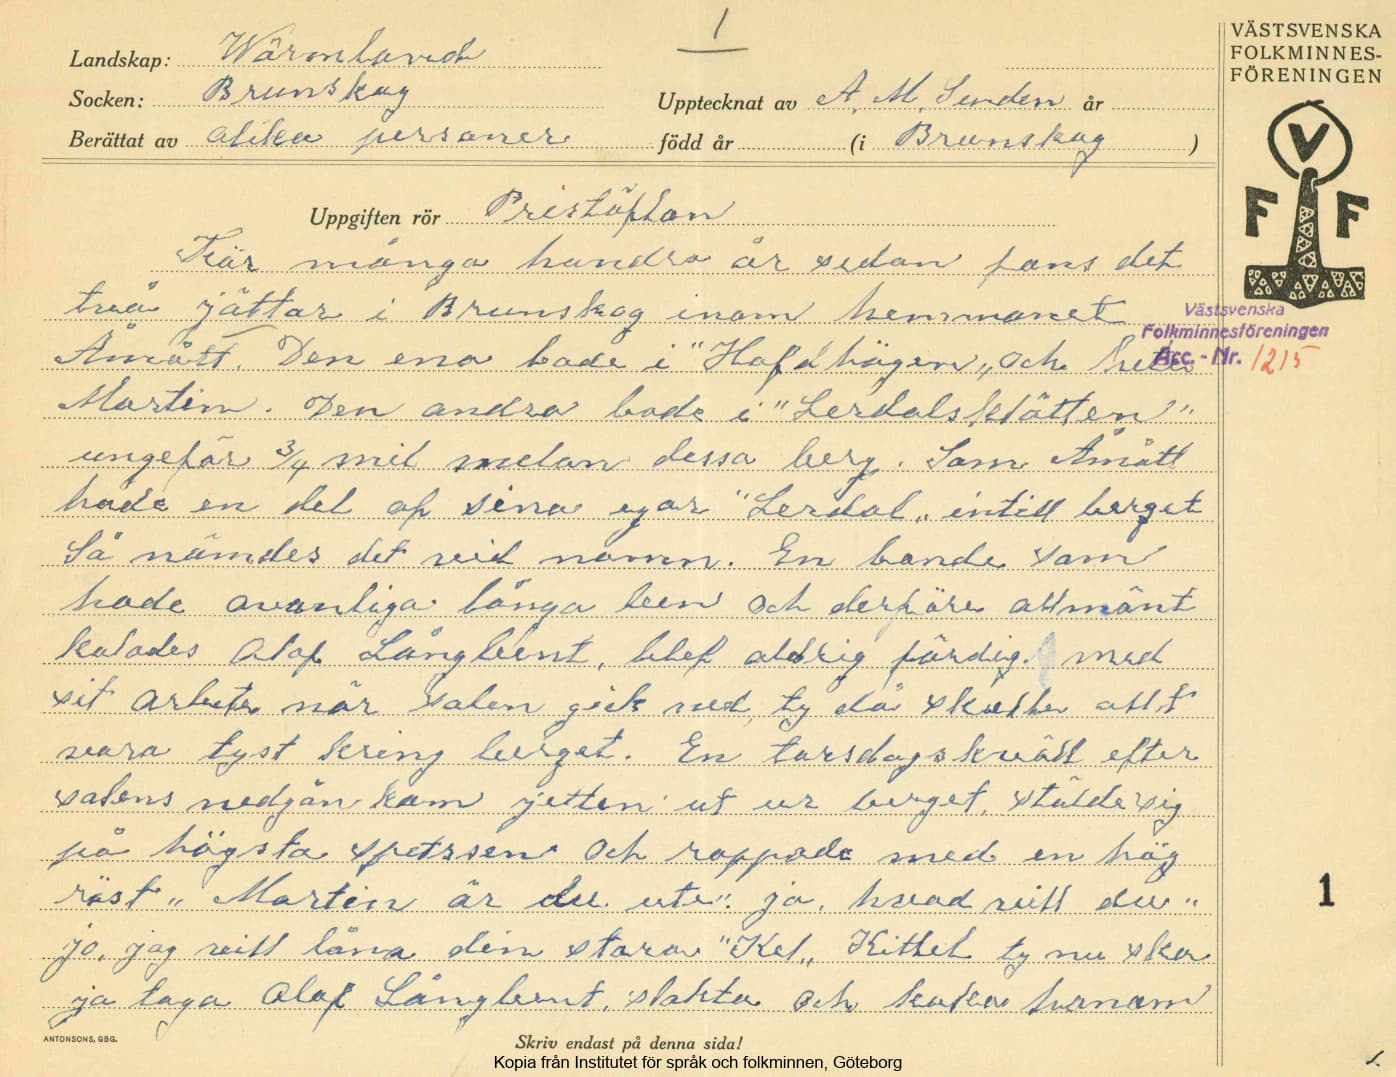 1
VÄSTSVENSKA
FOLKMINNES-
FÖRENINGEN
Landskap: Wärmland
Socken: Brunskog
Upptecknat av A. M. Senden år
Berättat av olika personer
född år (i Brunskog )
V
F F
Uppgiften rör
För många hundra år sedan fans det
två jättar i Brunskog inom hemmanet
Åmått. Den ena bode i "Hafdhögen" och hete
Västsvenska
Folkminnesföreningen
Acc. - Nr. 1215
Martin. Den andra bode i "Lerdalsklätten"
ungefär 3/4 mil melan dessa berg. Som Åmått
hade en del af sina egor "Lerdal" intill berget
Så nämdes det vid namn. En bonde som
hade ovanliga långa ben och derföre allmänt
kalades Olof Långbent, blef aldrig färdig med
sit arbete når solen gick ned, ty då skulle allt
vara tyst kring berget. En torsdagskväll efter
solens nedgån kom jetten ut ur berget, stälde sig
på högsta spetssen och roppade med en hög
röst " Martin är du ute". ja, hvad vill du "
jo, jag vill låna din stora "Kel" Kittel ty nu ska
ja taga Olof Långbent, slakta och koka honom
1
ANTONSONS, GBG.
Skriv endast på denna sida!
Kopia från Institutet för språk och folkminnen, Göteborg